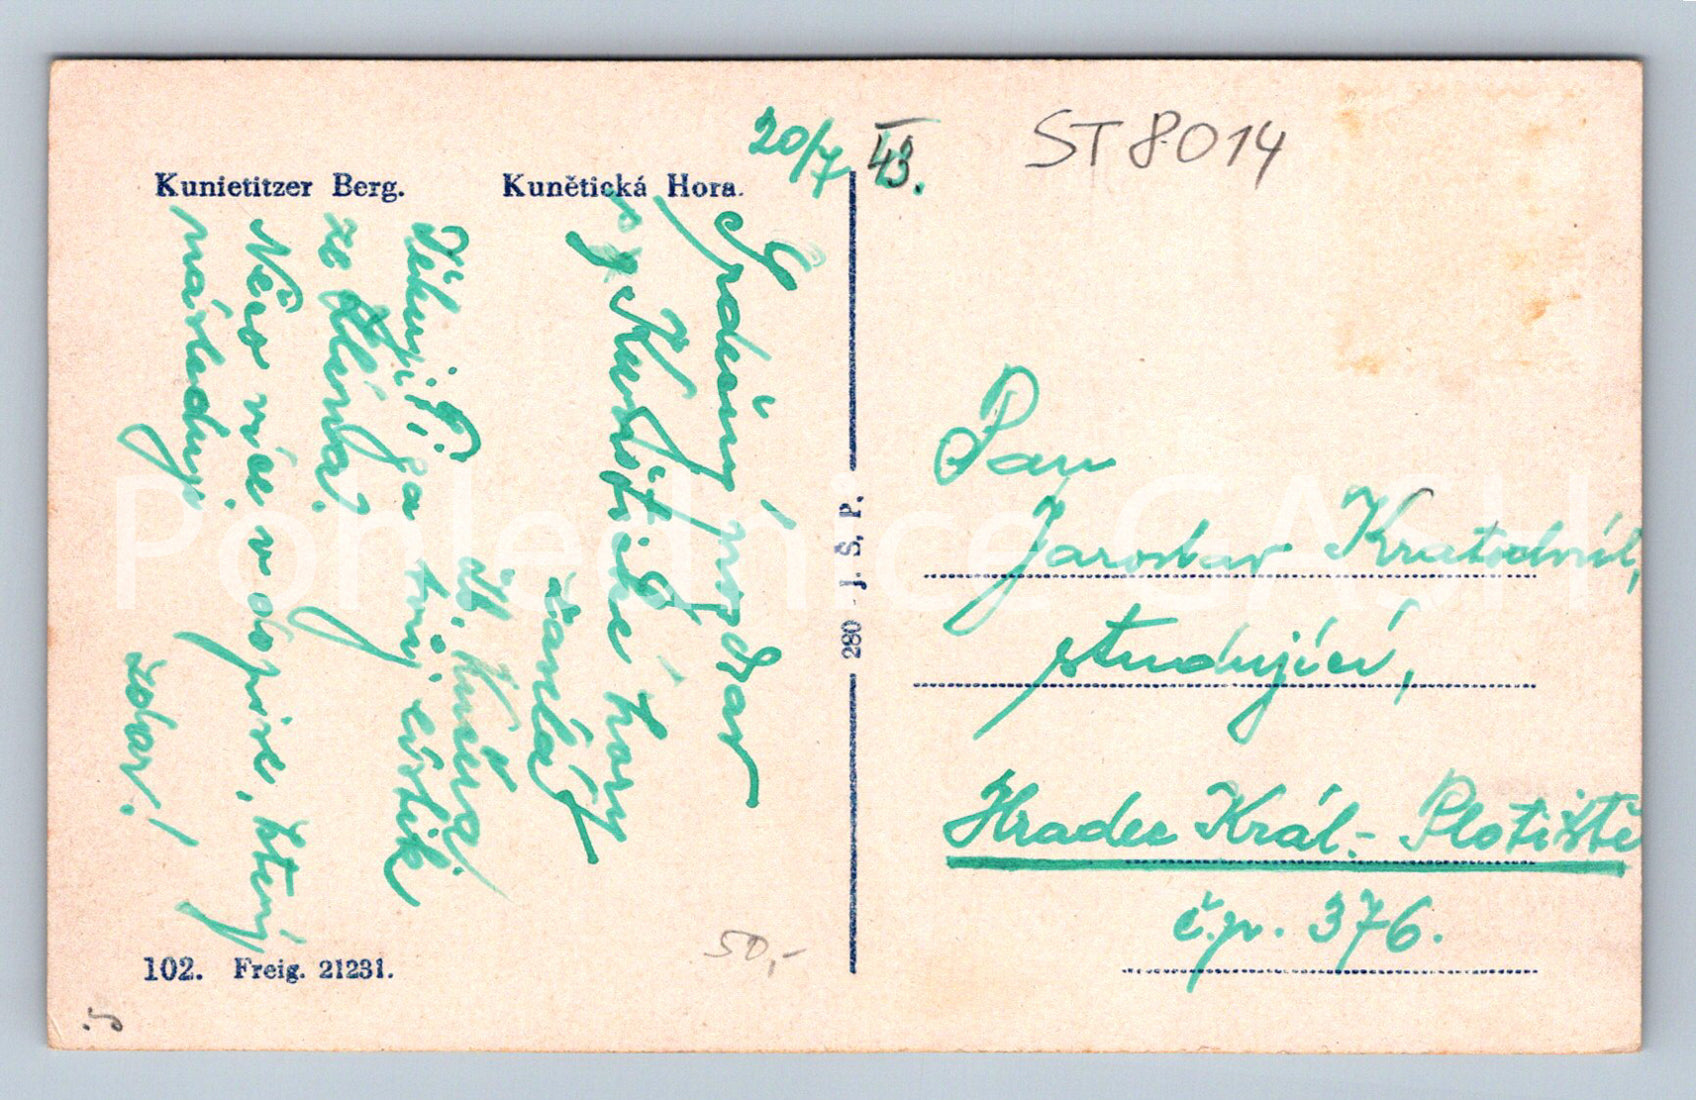 Kunietitzer Berg. Kunětická Hora.
20/7 43.
ST 8014
Srdečný pozdrav
z Kunětické hory
zasílá
Zd. Kuněš
Děkuji Ti za tvůj lístek
ze Hlinka.
Něco více v dopise, který
následuje
zobar!
280 - J. Š. P.
Pan
Jaroslav Kratochvíl,
studující,
Hradec Král.- Plotiště
č.p. 376.
102. Freig. 21231.
50,-
Pohlednice GASH